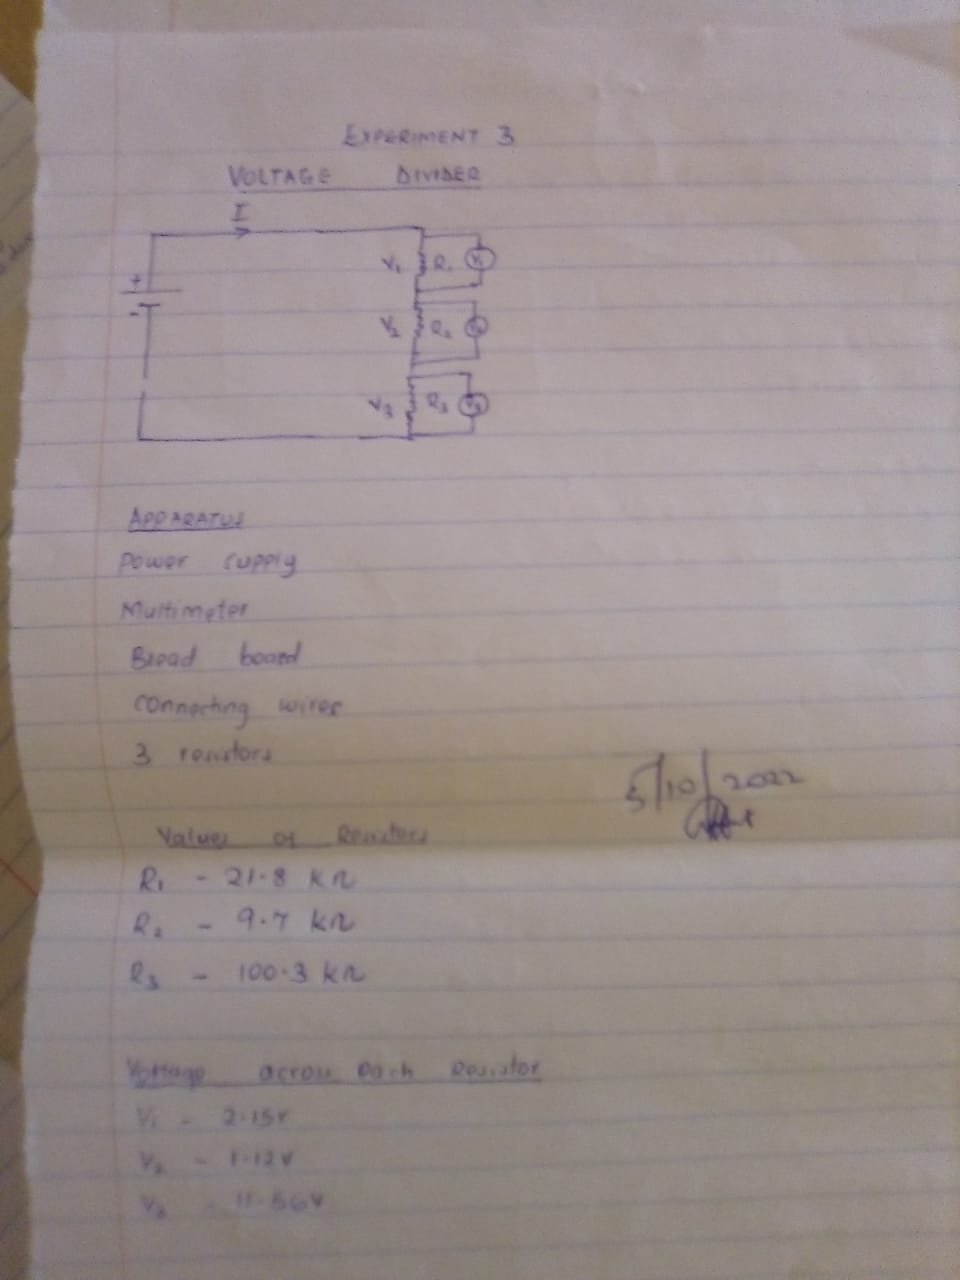 EXPERIMENT 3
VOLTAGE DIVIDER
I
+
-
V₁ R₁ V₁
V₂ R₂ V₂
V₃ R₃ V₃
APPARATUS
Power supply
Multimeter
Bread board
Connecting wires
3 resistors
5/10/2022
Values of Resistors
R₁ - 21.8 kΩ
R₂ - 9.7 kΩ
R₃ - 100.3 kΩ
Voltage across each Resistor
V₁ - 2.15V
V₂ - 1.12V
V₃ - 11.56V